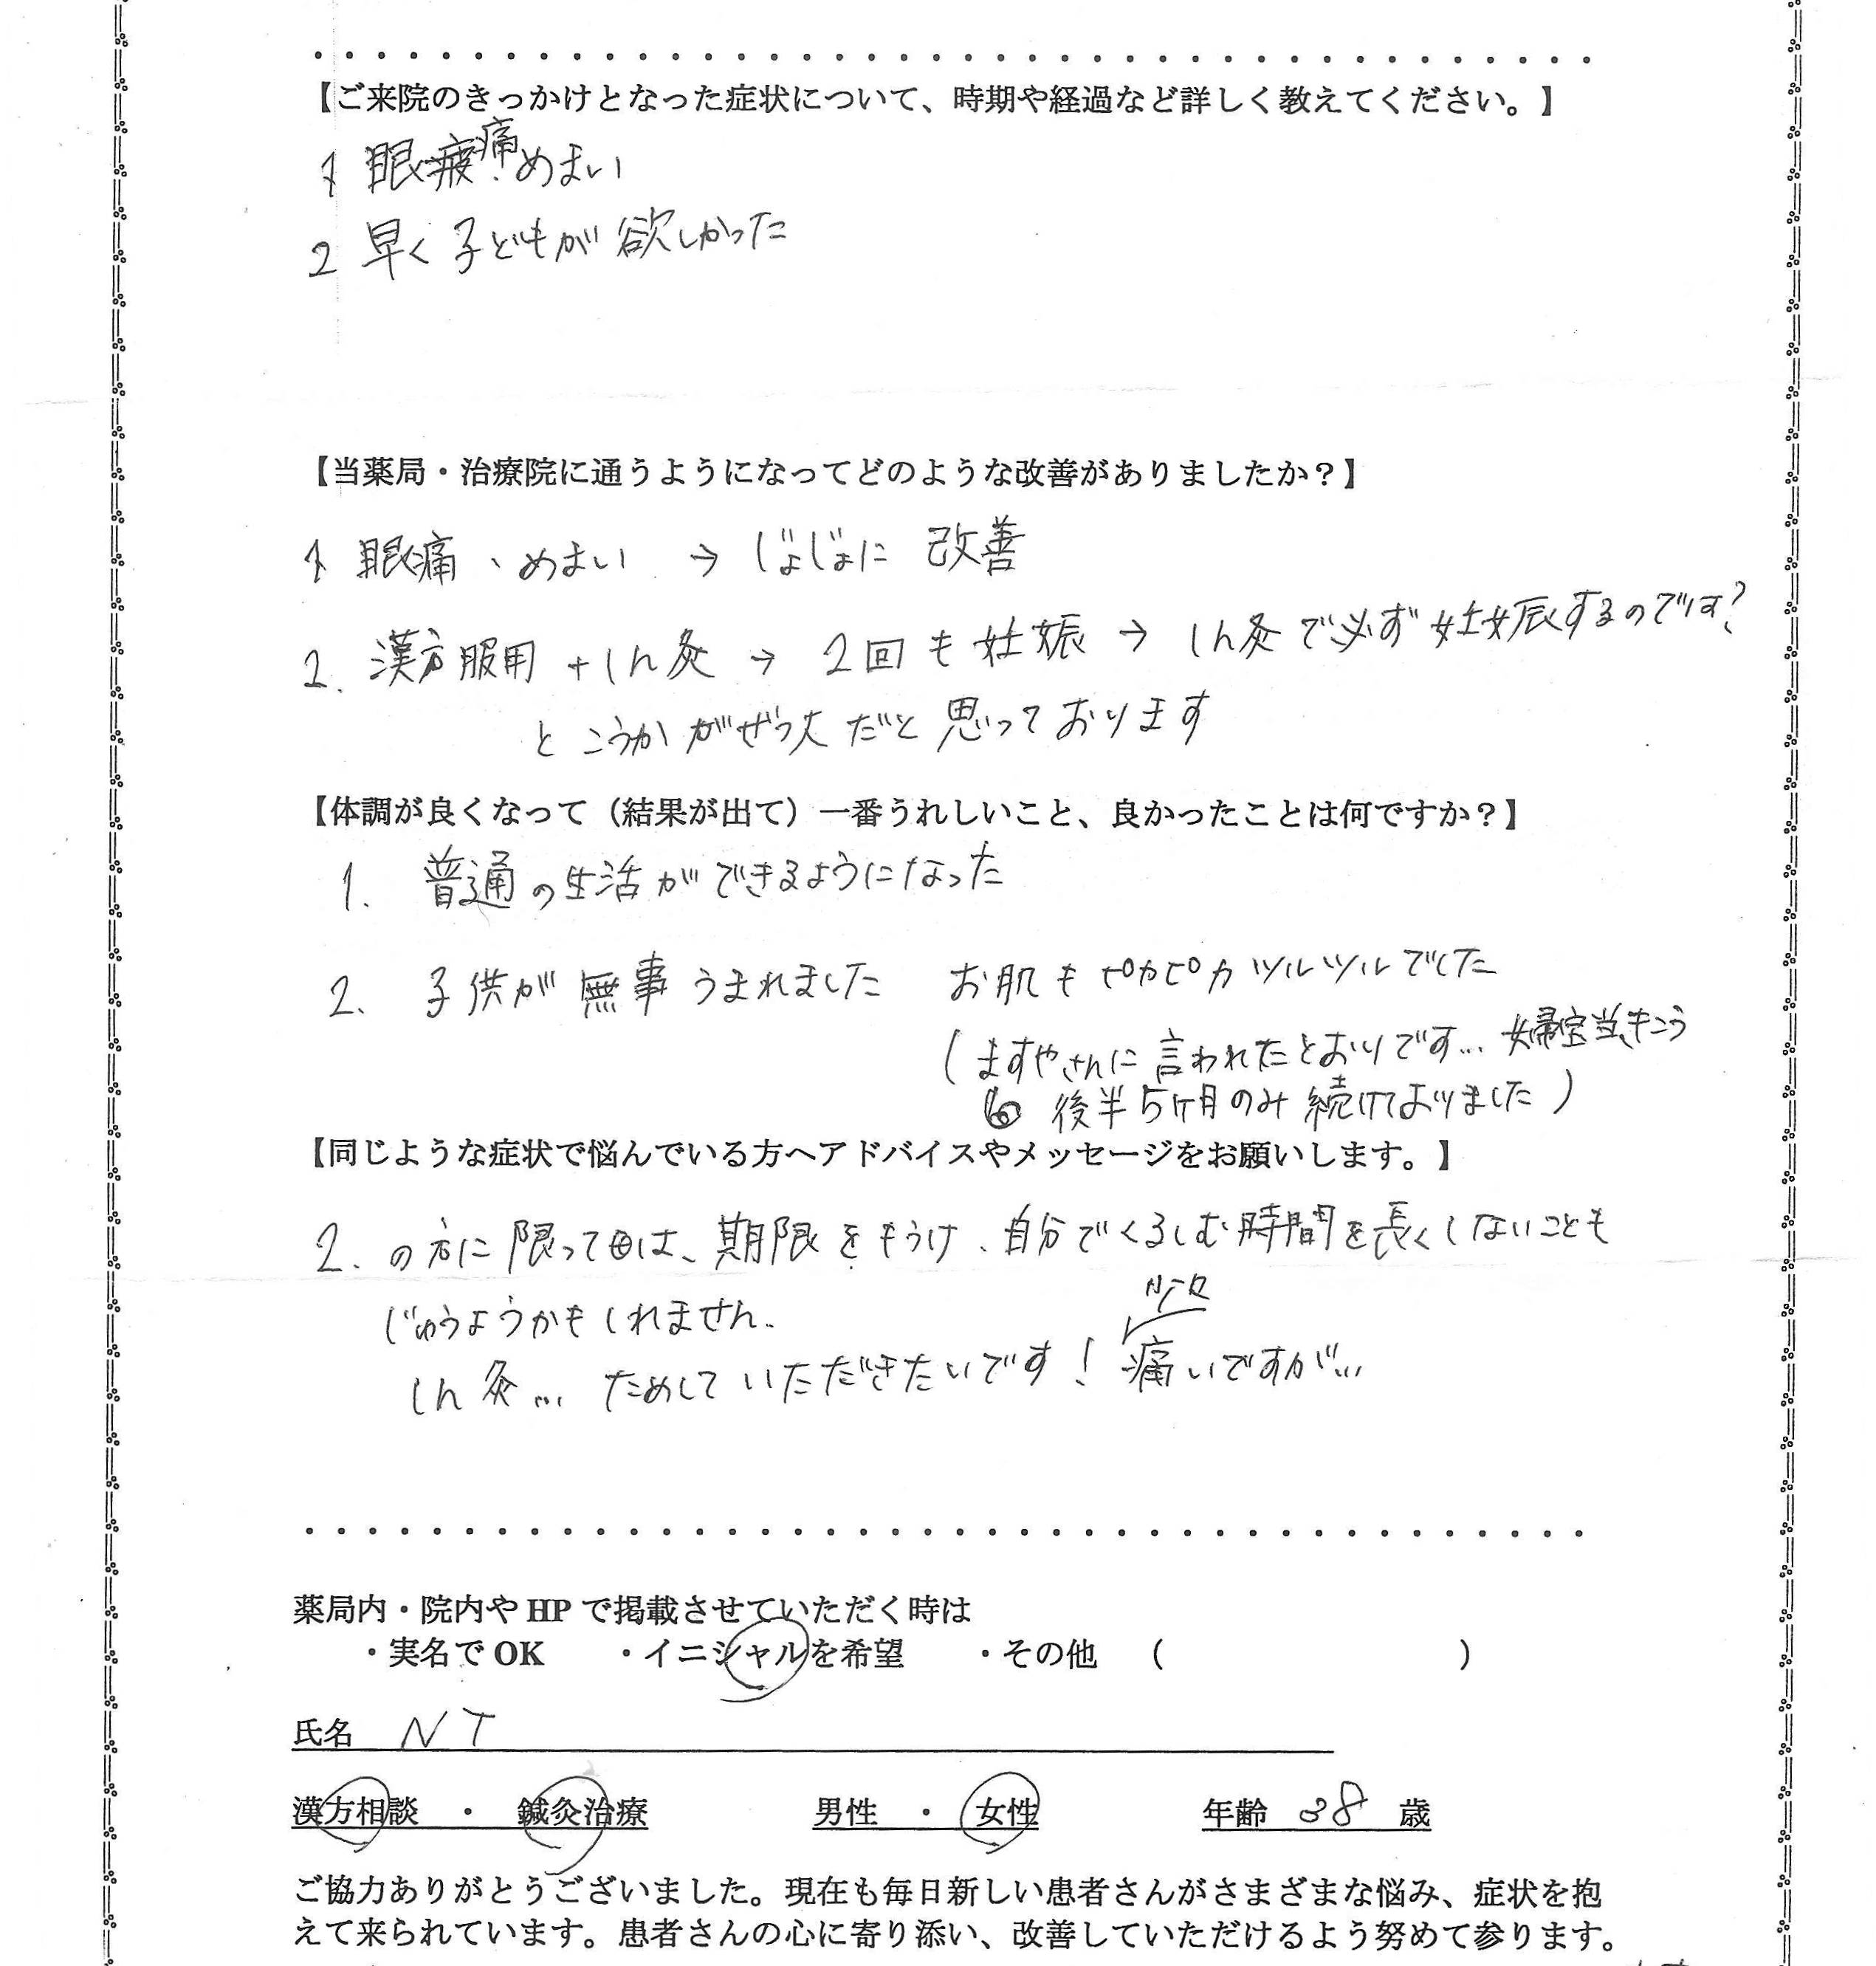 【ご来院のきっかけとなった症状について、時期や経過など詳しく教えてください。】
1 眼痛 めまい
2 早く子どもが欲しかった
【当薬局・治療院に通うようになってどのような改善がありましたか?】
1 眼痛、めまい → じょじょに 改善
2. 漢方服用 + しん灸 → 2回も妊娠 → しん灸で必ず妊娠するのです?
とこうかがぜつ大だと思っております
【体調が良くなって(結果が出て)一番うれしいこと、良かったことは何ですか?】
1. 普通の生活ができるようになった
2. 子供が無事うまれました お肌もピカピカツルツルでした
(ますやさんに言われたとおりです… 婦宝当キこう
後半5ケ月のみ続けておりました)
【同じような症状で悩んでいる方へアドバイスやメッセージをお願いします。】
2. の方に限っては、期限をもうけ、自分でくるしむ時間を長くしないことも
じゅうようかもしれません.
しん灸… ためしていただきたいです! 痛いですが…
薬局内・院内や HP で掲載させていただく時は
・実名で OK ・イニシャルを希望 ・その他 ( )
氏名 NT
漢方相談 ・ 鍼灸治療 男性 ・ 女性 年齢 38 歳
ご協力ありがとうございました。現在も毎日新しい患者さんがさまざまな悩み、症状を抱
えて来られています。患者さんの心に寄り添い、改善していただけるよう努めて参ります。